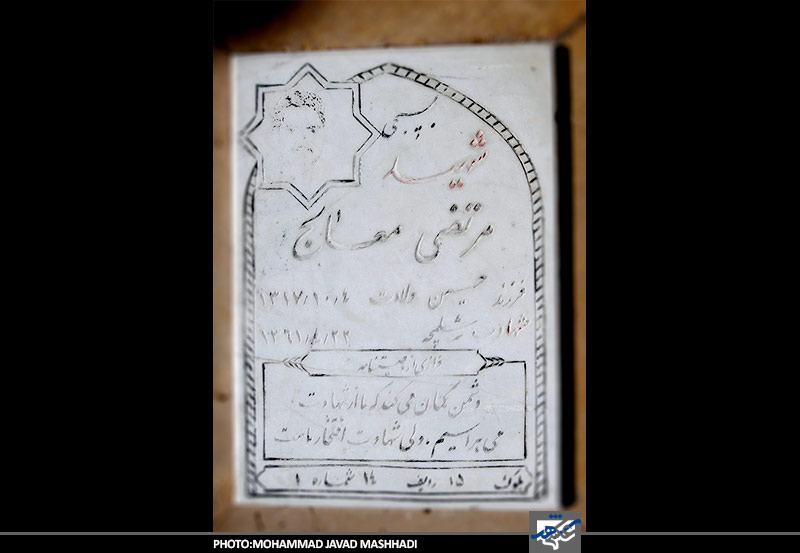 بسیجی
شهید
مرتضی معالج
فرزند حسین ولادت ۱۳۱۷/۱۰/۴
شهادت شلمچه ۱۳۶۱/۴/۲۲
فرازی از وصیتنامه
دشمن گمان می‌کند که ما از شهادت
می هراسیم ولی شهادت افتخار ماست
بلوک ۱۵ ردیف ۱۴ شماره ۱
PHOTO:MOHAMMAD JAVAD MASHHADI